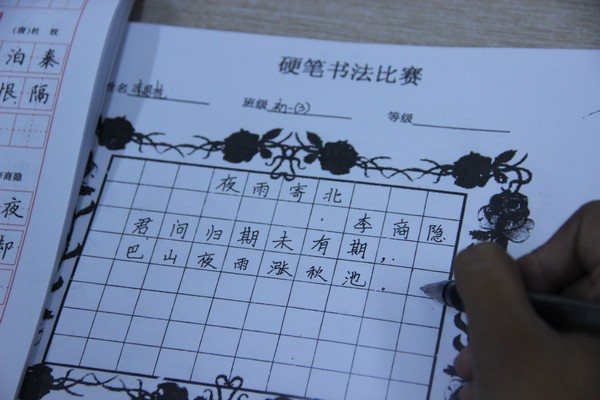 (唐)杜 牧
泊秦
恨隔
商隐
夜
却
硬笔书法比赛
姓名 班级 初一(3) 等级
夜雨寄北
李商隐
君问归期未有期,
巴山夜雨涨秋池.